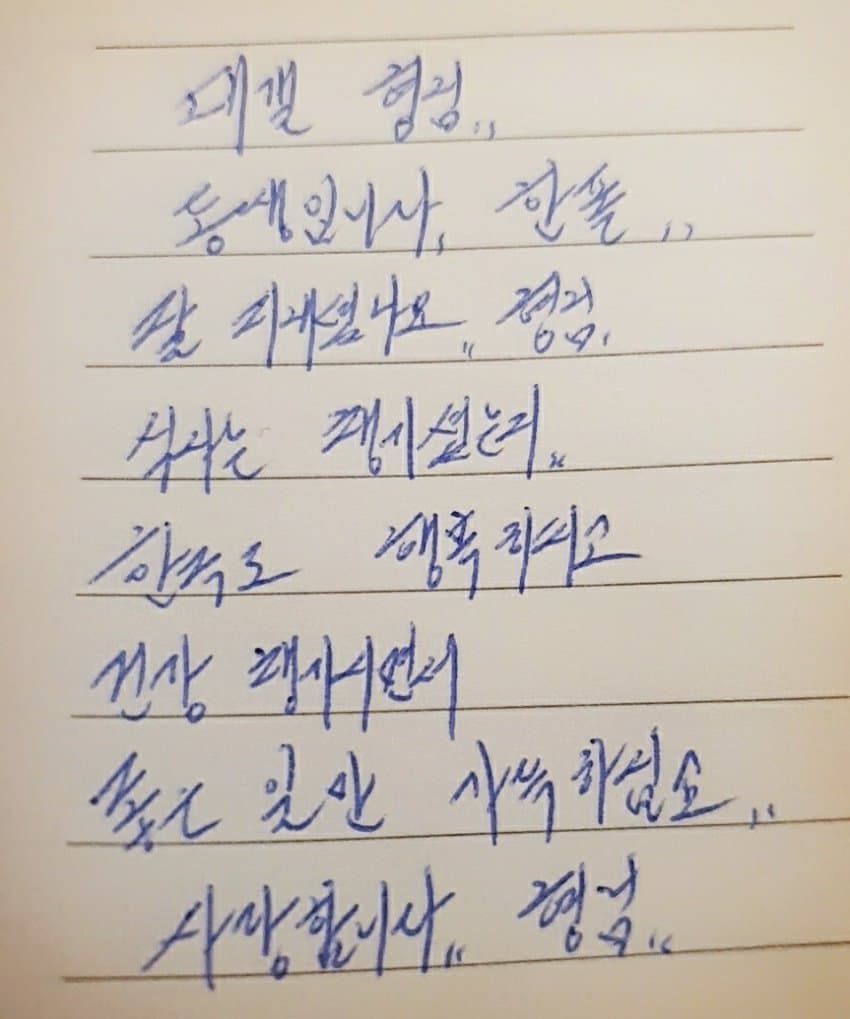 대갤 형님,,
동생입니다, 한풀,,
잘 지내셨나요,, 형님,
식사는 챙기셨는지,,
한주도 행복하시고
건강 챙기시면서
좋은 일만 가득하십쇼,,
사랑합니다,, 형님,,